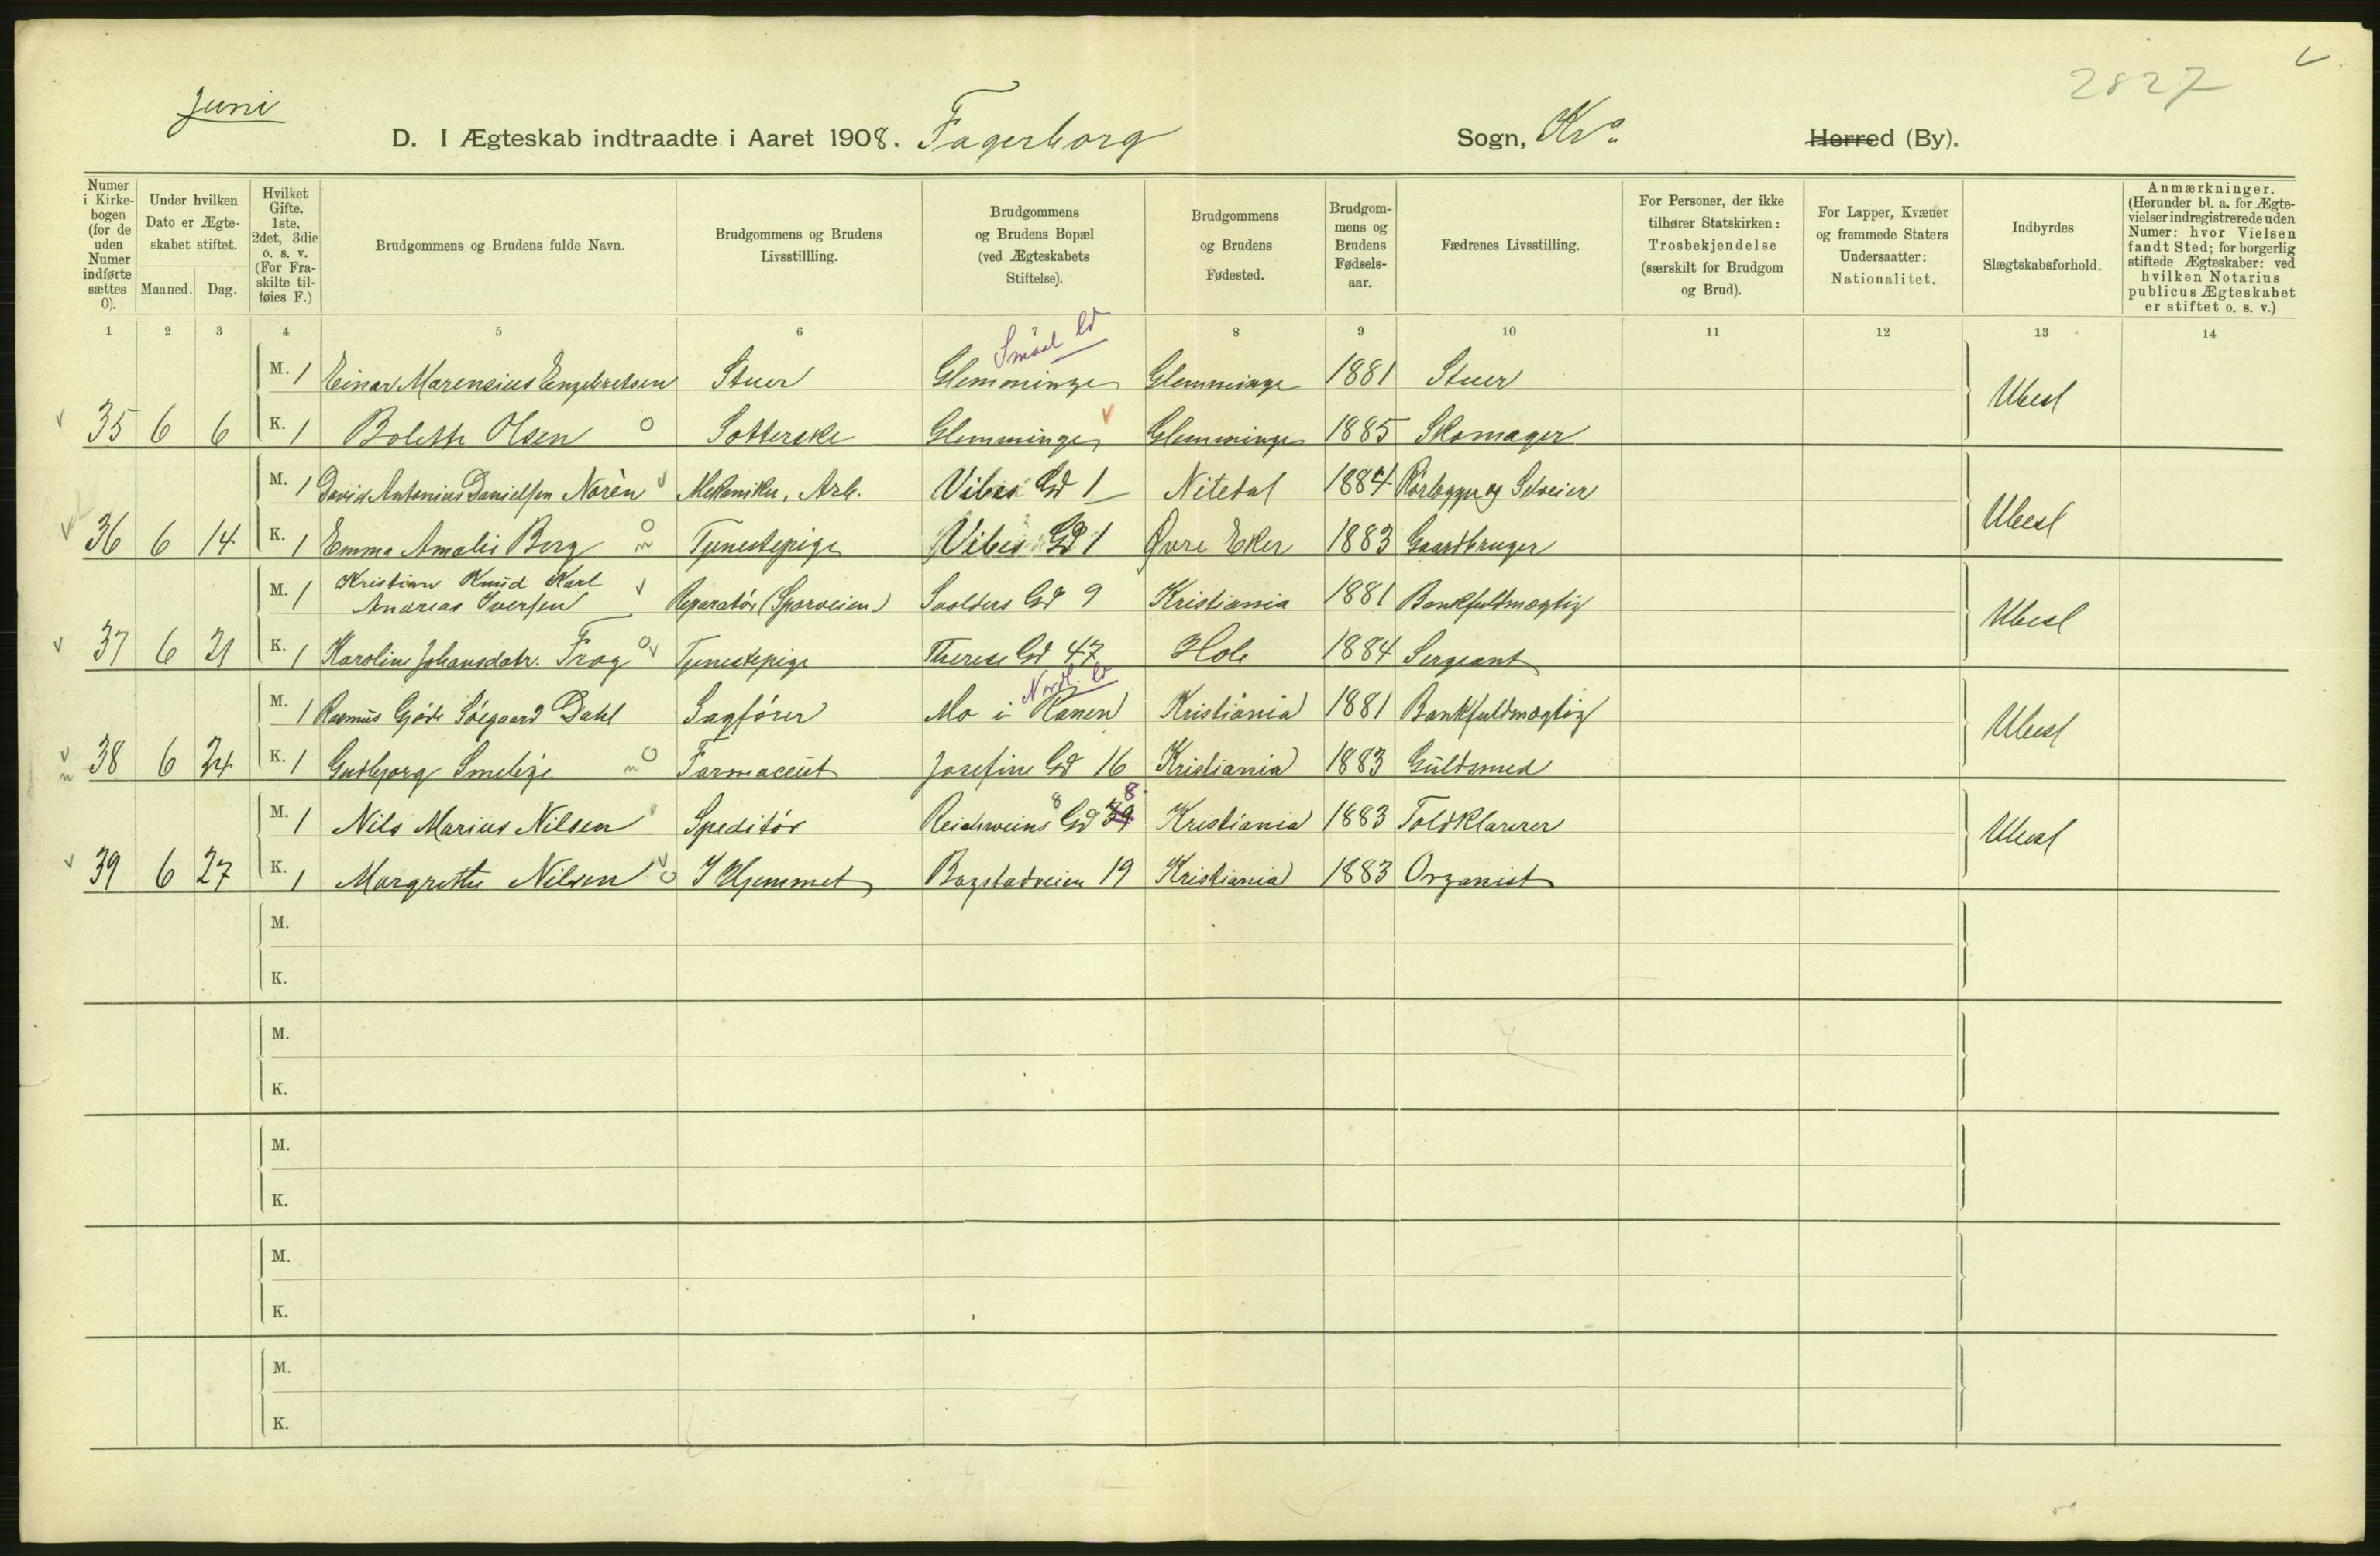 2827
Juni
D. I Ægteskab indtraadte i Aaret 1908. Fagerborg Sogn, Kra. Herred (By).
Numer i Kirke-bogen (for de uden Numer indførte sættes 0).
Under hvilken Dato er Ægte-skabet stiftet.
Maaned. Dag.
Hvilket Gifte. 1ste. 2det, 3die o. s. v. (For Fra-skilte til-føies F.)
Brudgommens og Brudens fulde Navn.
Brudgommens og Brudens Livsstillling.
Brudgommens og Brudens Bopæl (ved Ægteskabets Stiftelse).
Brudgommens og Brudens Fødested.
Brudgom-mens og Brudens Fødsels-aar.
Fædrenes Livsstilling.
For Personer, der ikke tilhører Statskirken: Trosbekjendelse (særskilt for Brudgom og Brud).
For Lapper, Kvæner og fremmede Staters Undersaatter: Nationalitet.
Indbyrdes Slægtskabsforhold.
Anmærkninger. (Herunder bl. a. for Ægte-vielser indregistrerede uden Numer: hvor Vielsen fandt Sted; for borgerlig stiftede Ægteskaber: ved hvilken Notarius publicus Ægteskabet er stiftet o. s. v.)
1 2 3 4 5 6 7 8 9 10 11 12 13 14
Smaal
M. 1 Einar Marensius Engebretsen Stuer Glemminge Glemminge 1881 Stuer Ubesl
35 6 6 K. 1 Bolette Olsen Glemminge Glemminge 1885 Skomager
M. 1 David Antonius Danielsen Norèn Mekaniker, Arb. Vibes Gd 1 Nitedal 1884 Rørlægger og Selveier Ubesl
36 6 14 K. 1 Emma Amalie Berg Tjenestepige Vibes Gd 1 Øvre Eker 1883 Gaardbruger
M. 1 Kristian Knud Karl
Andreas Iversen Reparatør (Sporveien) Gd 9 Kristiania 1881 Bankfuldmægtig Ubesl
37 6 21 K. 1 Karoline Johansdatr. Frog Tjenestepige Therese Gd 47 Hole 1884 Sergeant
Nordl.
M. 1 Rasmus Gjöde Söegaard Dahl Sagfører Mo i Ranen Kristiania 1881 Bankfuldmægtig Ubesl
38 6 24 K. 1 Gudbjorg Farmaceut Josefine Gd 16 Kristiania 1883 Guldsmed
8
M. 1 Nils Marius Nilsen Speditør Reichweins Gd 39 Kristiania 1883 Toldklarerer Ubesl
39 6 27 K. 1 Margrethe Nilsen I Hjemmet Bogstadveien 19 Kristiania 1883 Organist
M.
K.
M.
K.
M.
K.
M.
K.
M.
K.